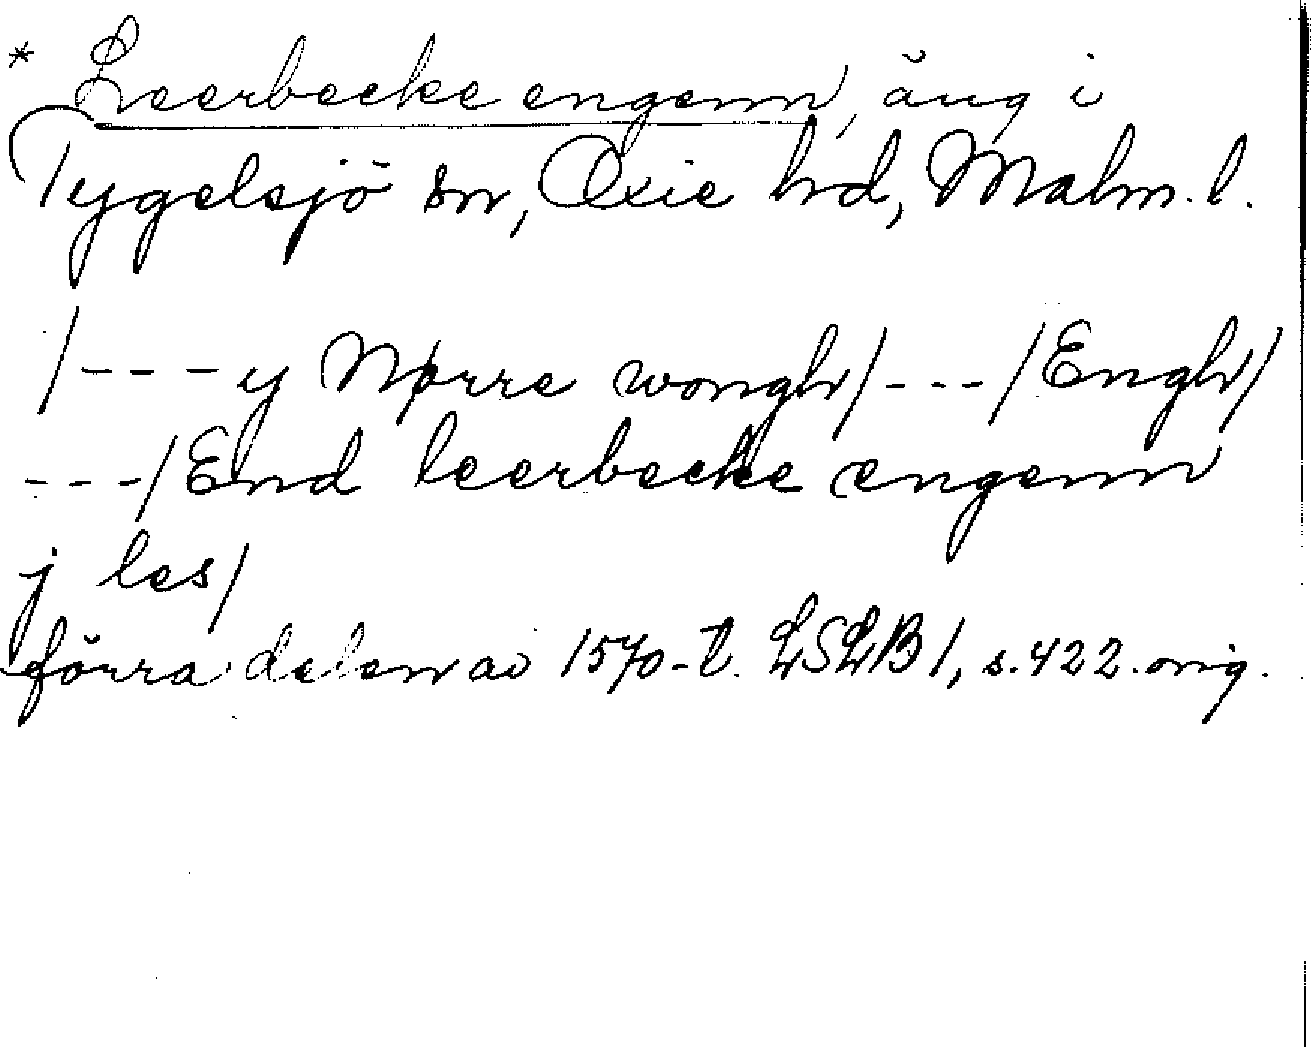 * Leerbecke engenn, äng i
Tygelsjö sn, Oxie hd, Malm. l.
/---y Nørre wongh/---/Engh/
---/End leerbecke engenn
j les/
förra delen av 1570-t. LSLB 1, s. 422. orig.